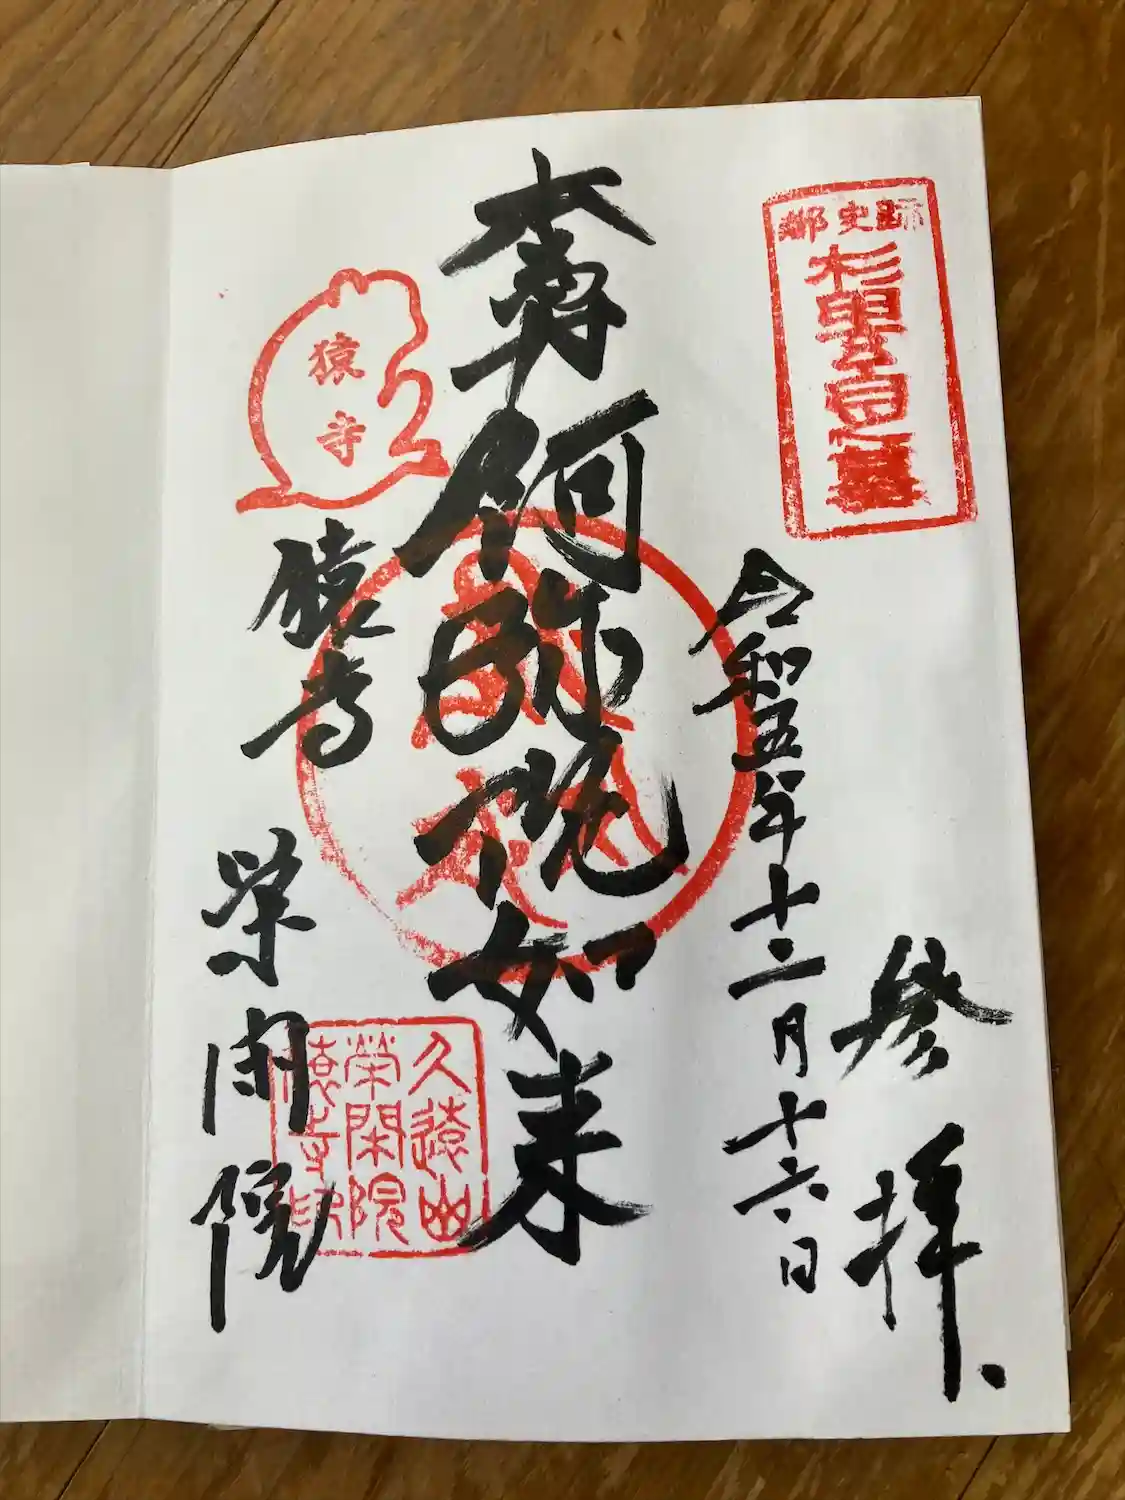 都史跡
杉田玄白之墓
参拝、
令和五年十二月十六日
阿弥陀如来
猿寺
猿寺
栄閑院
久遠山
榮閑院
猿寺印